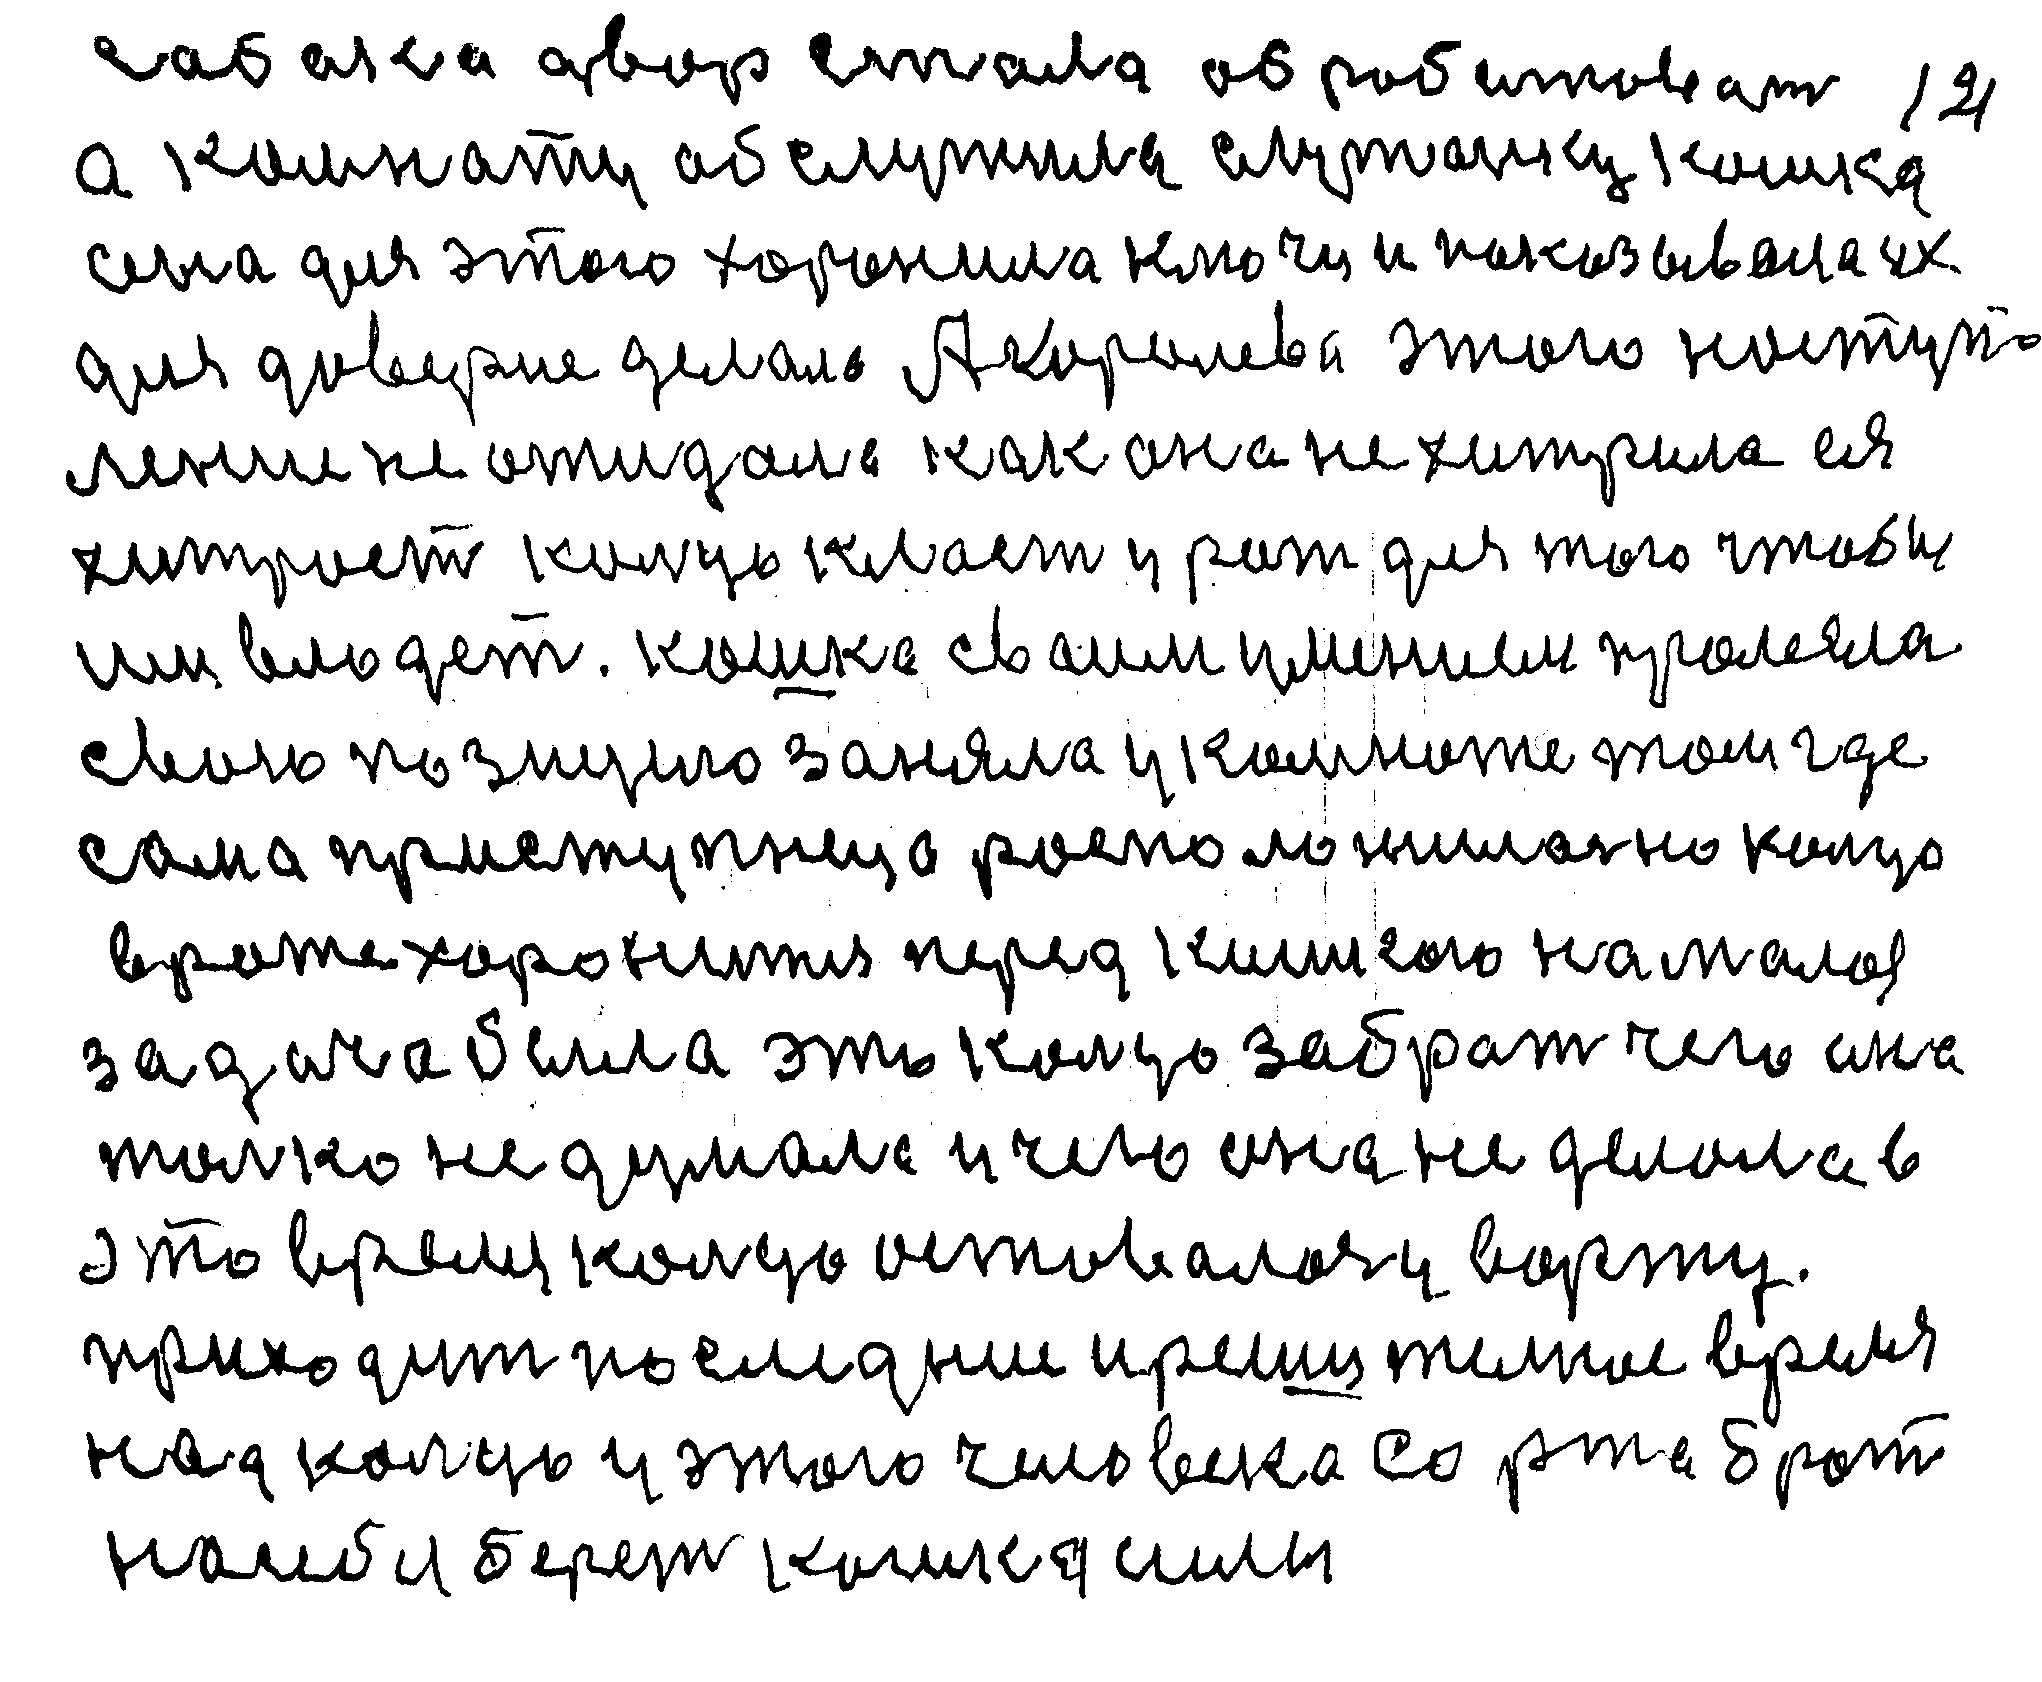 сабака двор стала обработоват 121
а комнату обслужила служанку кошка
сена для этого хоронила ключи и показывала их
для доверие делаль А королева этого поступ-
ление не ожидала как она не хитрила ся
хитрост колцо класт у рот для того чтоби
им владет. кошка своим умением пролезла
свою позицию заняла у комнате том где
сама приступнеца росположилась но колцо
в роте хоронится перед кишкою намалоя
задача била это колцо забрат чего она
толко не думала и чего она не делола в
это время колцо оставалось у ворту.
приходит последние и решителное время
над колцо у этого человека со рта брат
нашеби берет кошка сили